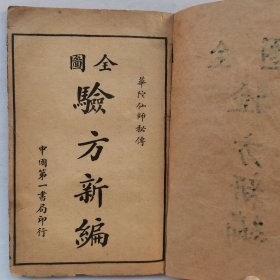 華陀仙師秘傳
全圖
驗方新編
中國第一書局印行
全圖
驗方新編